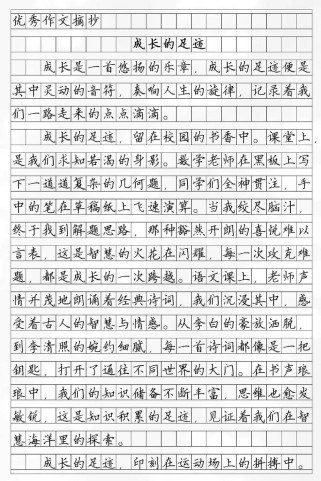 优秀作文摘抄
成长的足迹
成长是一首悠扬的乐章，成长的足迹便是
其中灵动的音符，奏响人生的旋律，记录着我
们一路走来的点点滴滴。
成长的足迹，留在校园的书香中。课堂上，
是我们求知若渴的身影。数学老师在黑板上写
下一道道复杂的几何题，同学们全神贯注，手
中的笔在草稿纸上飞速演算。当我绞尽脑汁，
终于找到解题思路，那种豁然开朗的喜悦难以
言表，这是智慧的火花在闪耀，每一次攻克难
题，都是成长的一次跨越。语文课上，老师声
情并茂地朗诵着经典诗词，我们沉浸其中，感
受着古人的智慧与情感。从李白的豪放洒脱，
到李清照的婉约细腻，每一首诗词都像是一把
钥匙，打开了通往不同世界的大门。在书声琅
琅中，我们的知识储备不断丰富，思维也愈发
敏锐，这是知识积累的足迹，见证着我们在智
慧海洋里的探索。
成长的足迹，印刻在运动场上的拼搏中。